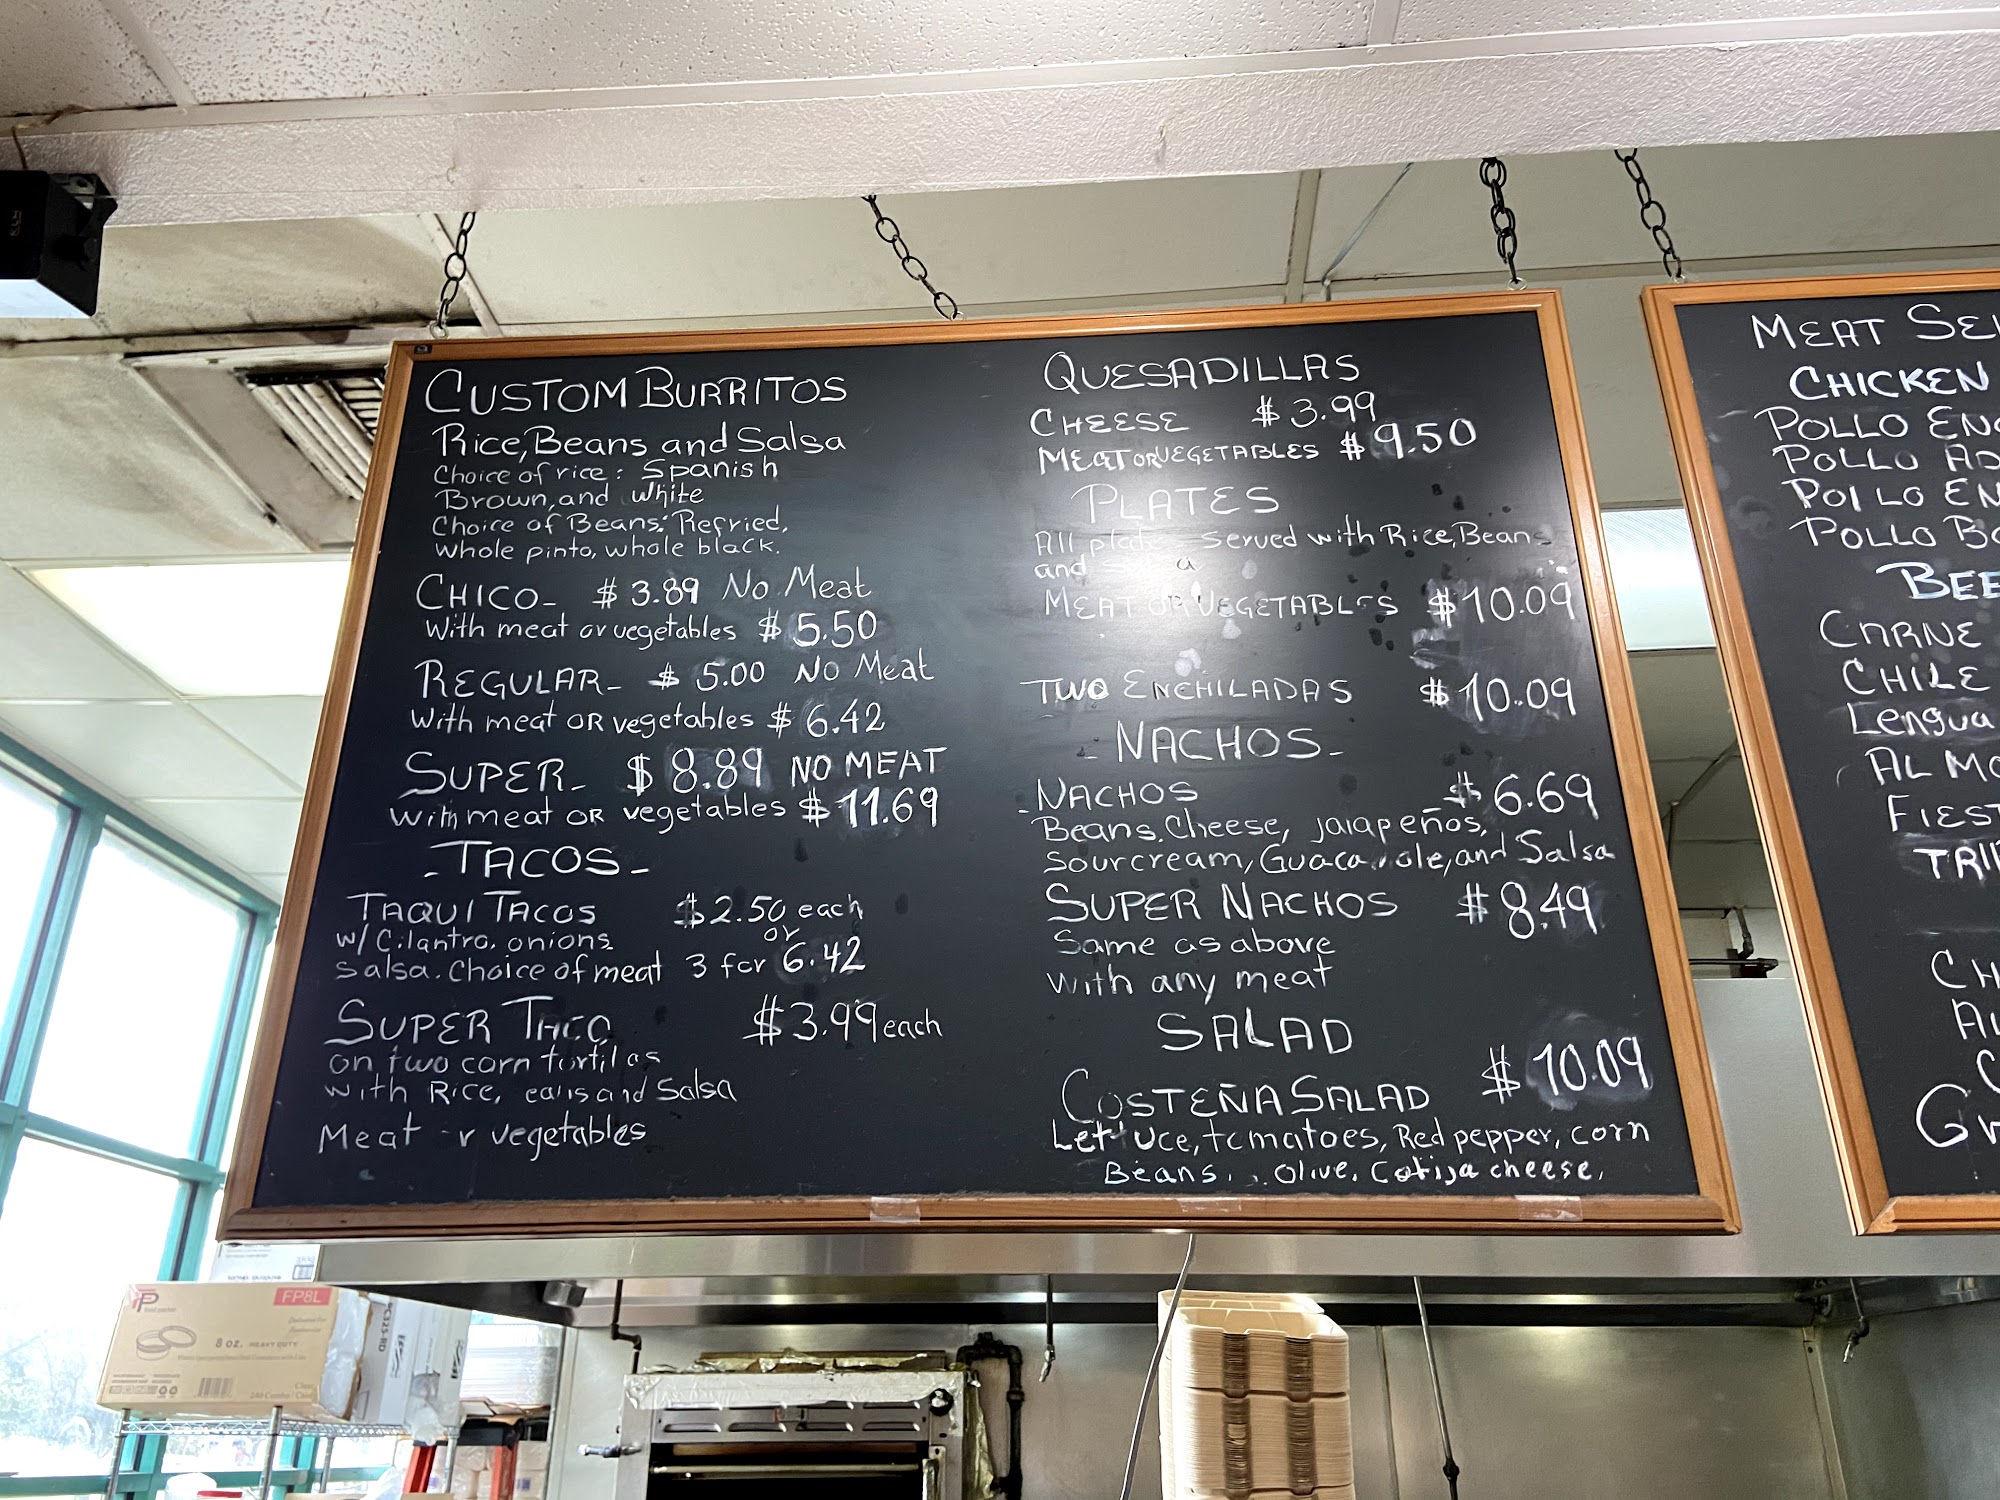 CUSTOM BURRITOS
Rice, Beans and Salsa
Choice of rice: Spanish
Brown, and White
Choice of Beans: Refried,
Whole pinto, whole black.
CHICO- $3.89 No Meat
With meat or vegetables $5.50
REGULAR- $5.00 No Meat
With meat OR vegetables $6.42
SUPER- $8.89 NO MEAT
With meat OR vegetables $11.69
-TACOS-
TAQUI TACOS $2.50 each
or
w/ Cilantro, onions
Salsa. Choice of meat 3 for 6.42
SUPER TACO $3.99 each
on two corn tortil as
with Rice, eans and Salsa
Meat r vegetables
QUESADILLAS
CHEESE $3.99
MEAT OR VEGETABLES $9.50
PLATES
All plat served with Rice, Beans
and S a
MEAT OR VEGETABLES $10.09
TWO ENCHILADAS $10.09
-NACHOS-
NACHOS $6.69
Beans, Cheese, jalapeños,
Sourcream, Guaca ole, and Salsa
SUPER NACHOS $8.49
Same as above
with any meat
SALAD
COSTEÑA SALAD $10.09
Lettuce, tomatoes, Red pepper, corn
Beans, Olive, Cotija cheese,
MEAT SE
CHICKEN
POLLO EN
POLLO AD
POLLO EN
POLLO BO
BEE
CARNE
CHILE
Lengua
AL MO
FIEST
TRI
CH
AL
C
G
FP8L
8 OZ. HEAVY DUTY